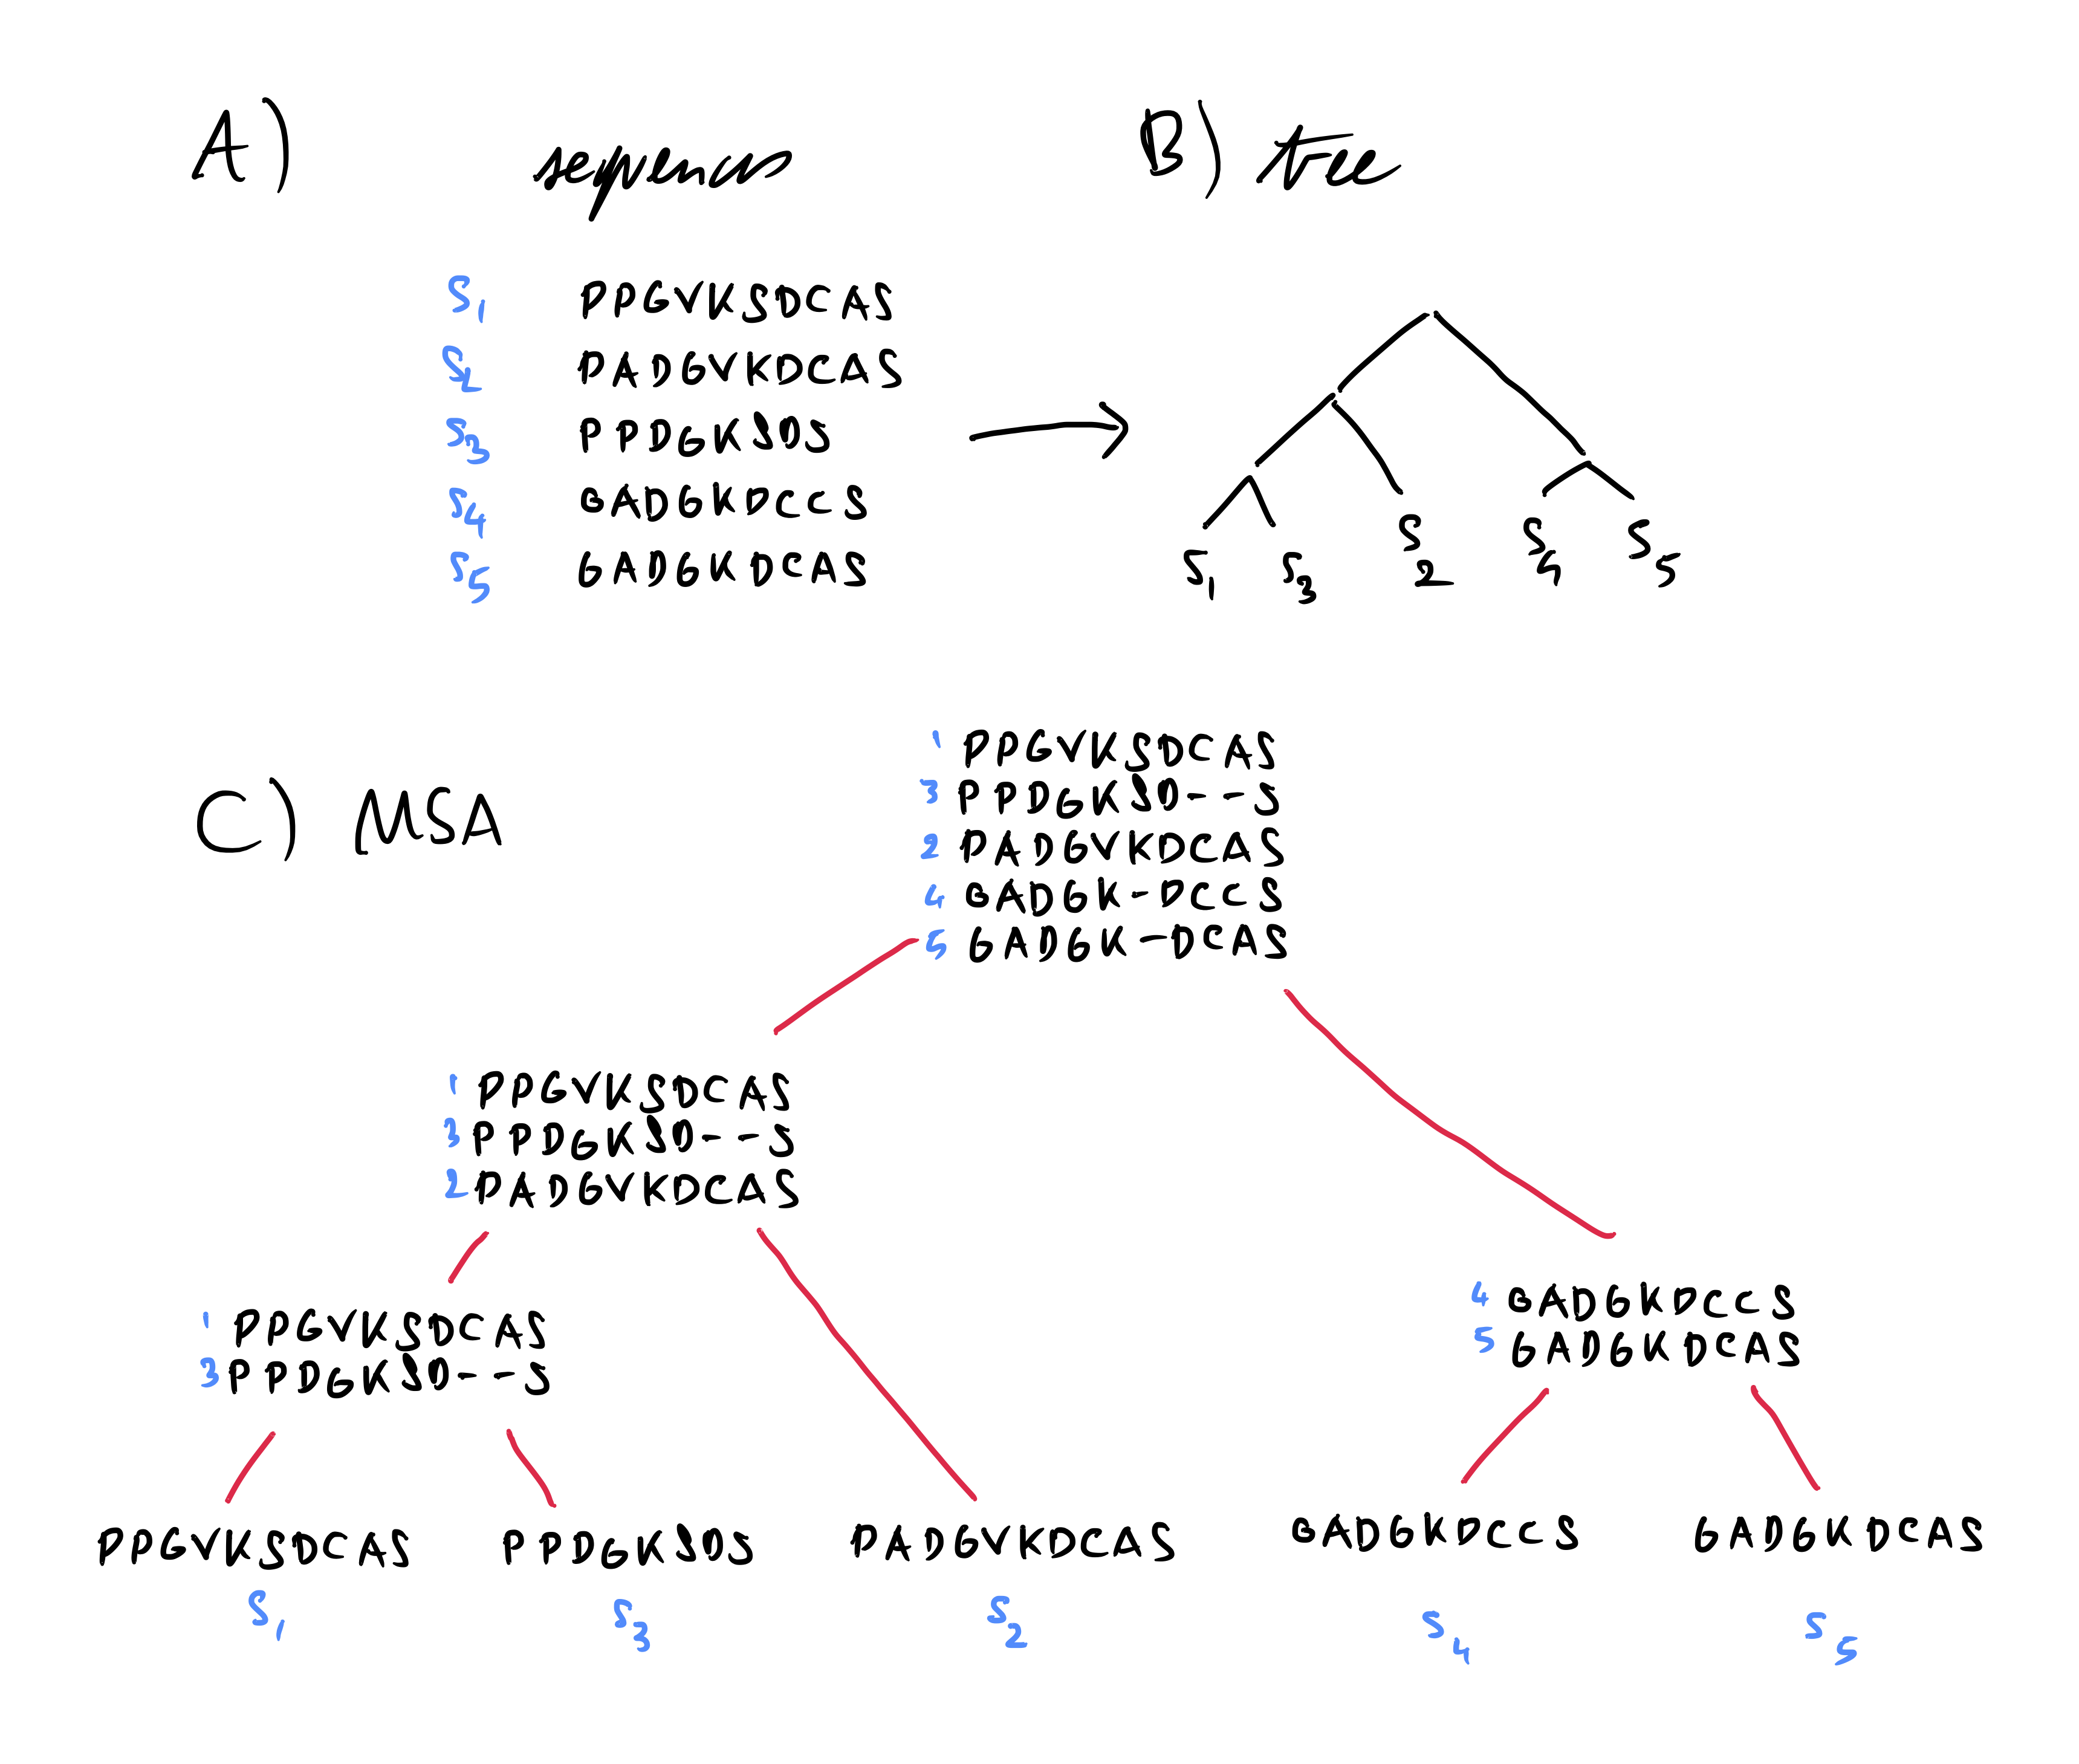 A) sequences
B) tree
S1 PPGVKSDCAS
S2 PADGVKDCAS
S3 PPDGKSDS
S4 GADGKDCCS
S5 GADGKDCAS
S1 S3 S2 S4 S5
C) MSA
1 PPGVKSDCAS
3 PPDGKSD--S
2 PADGVKDCAS
4 GADGK-DCCS
5 GADGK-DCAS
1 PPGVKSDCAS
3 PPDGKSD--S
2 PADGVKDCAS
1 PPGVKSDCAS
3 PPDGKSD--S
4 GADGKDCCS
5 GADGKDCAS
PPGVKSDCAS PPDGKSDS PADGVKDCAS GADGKDCCS GADGKDCAS
S1 S3 S2 S4 S5